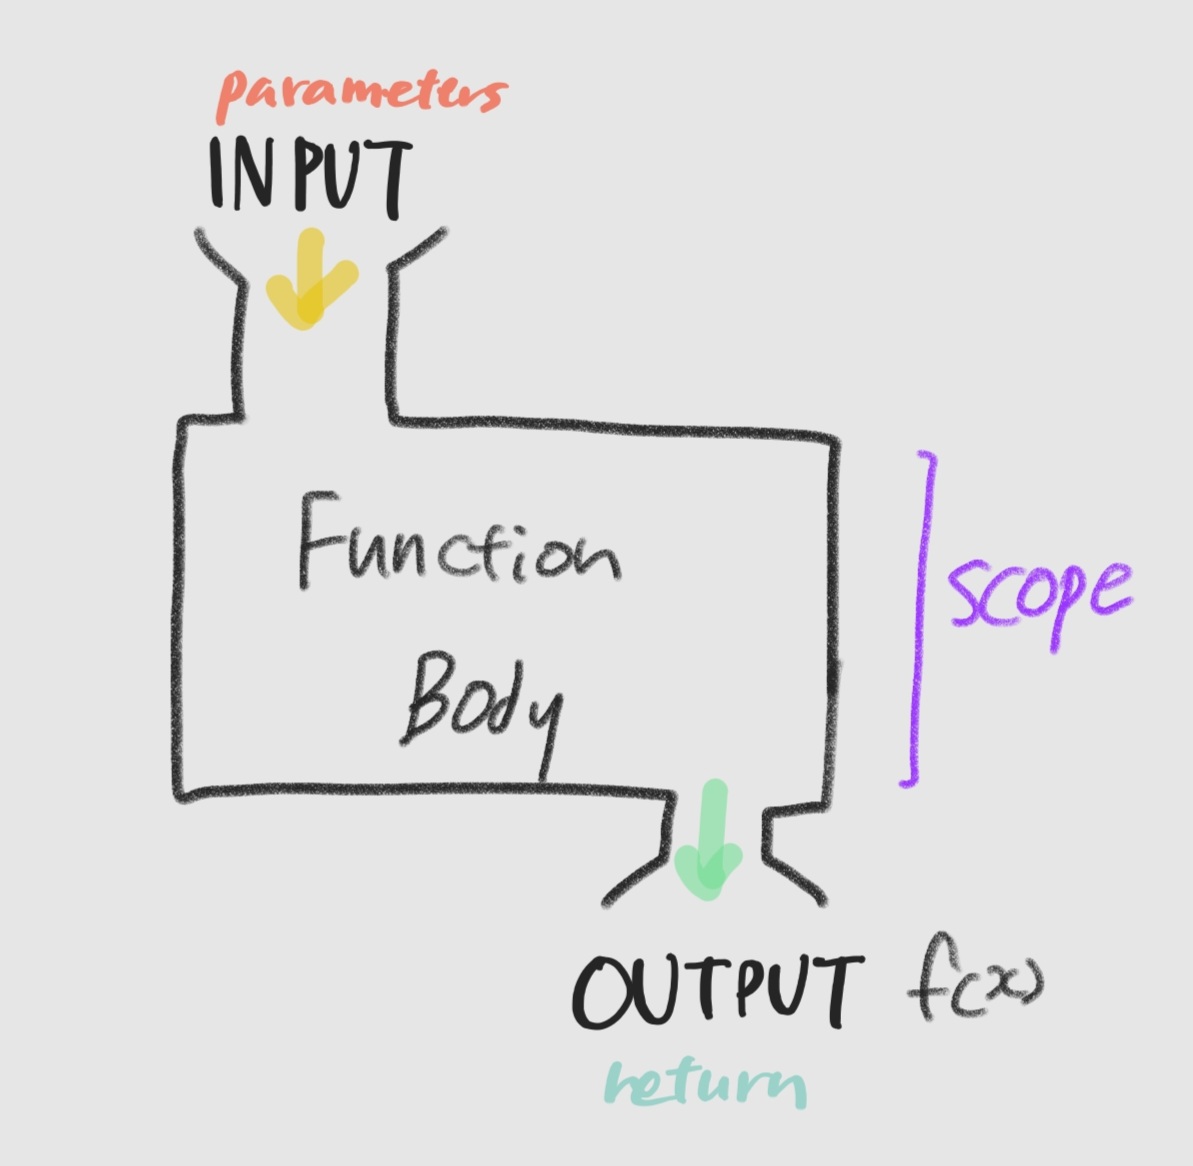 parameters
INPUT
Function
Body
scope
OUTPUT f(x)
return